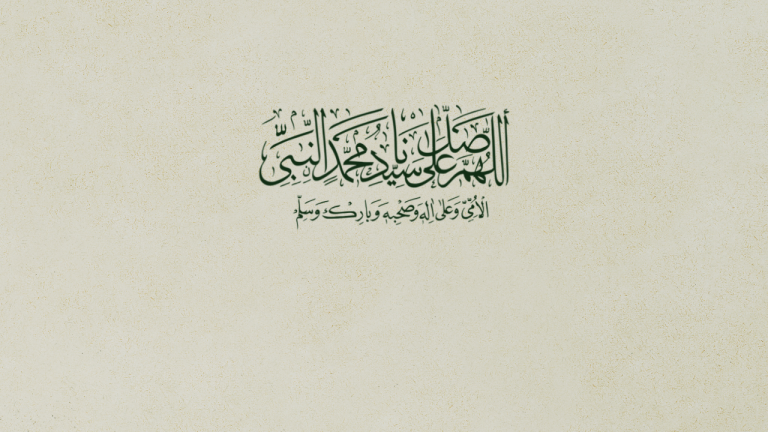 أللهم صل على سيدنا محمد النبي
الأمي وعلى اله وصحبه وبارك وسلم